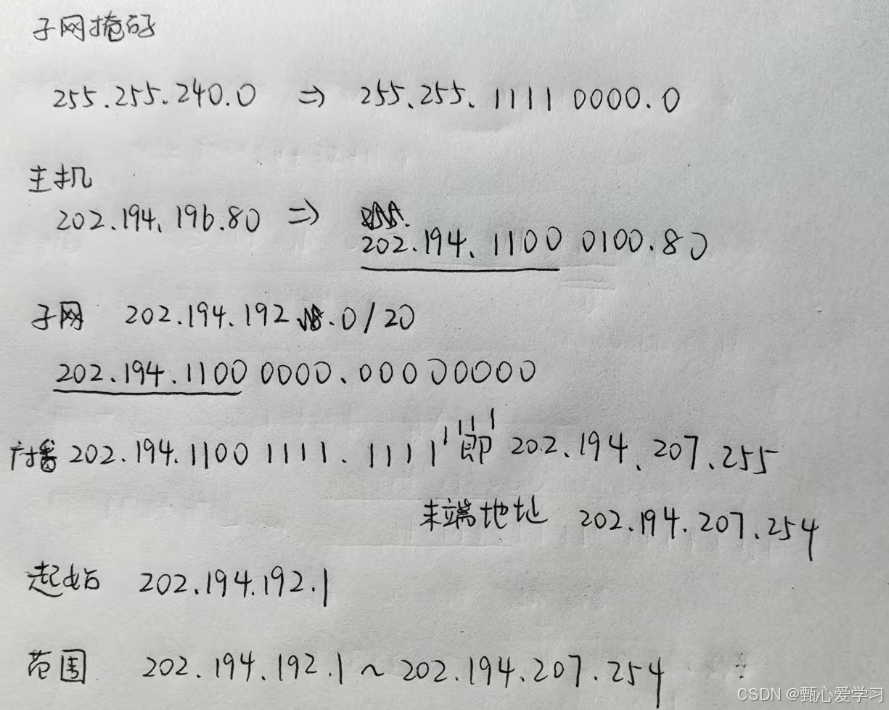 子网掩码
255.255.240.0 ⇒ 255.255.1111 0000.0
主机
202.194.196.80 ⇒ 202.194.1100 0100.80
子网 202.194.192.0/20
202.194.1100 0000.00000000
广播 202.194.1100 1111.11111111 即 202.194.207.255
末端地址 202.194.207.254
起始 202.194.192.1
范围 202.194.192.1~202.194.207.254
CSDN @甄心爱学习